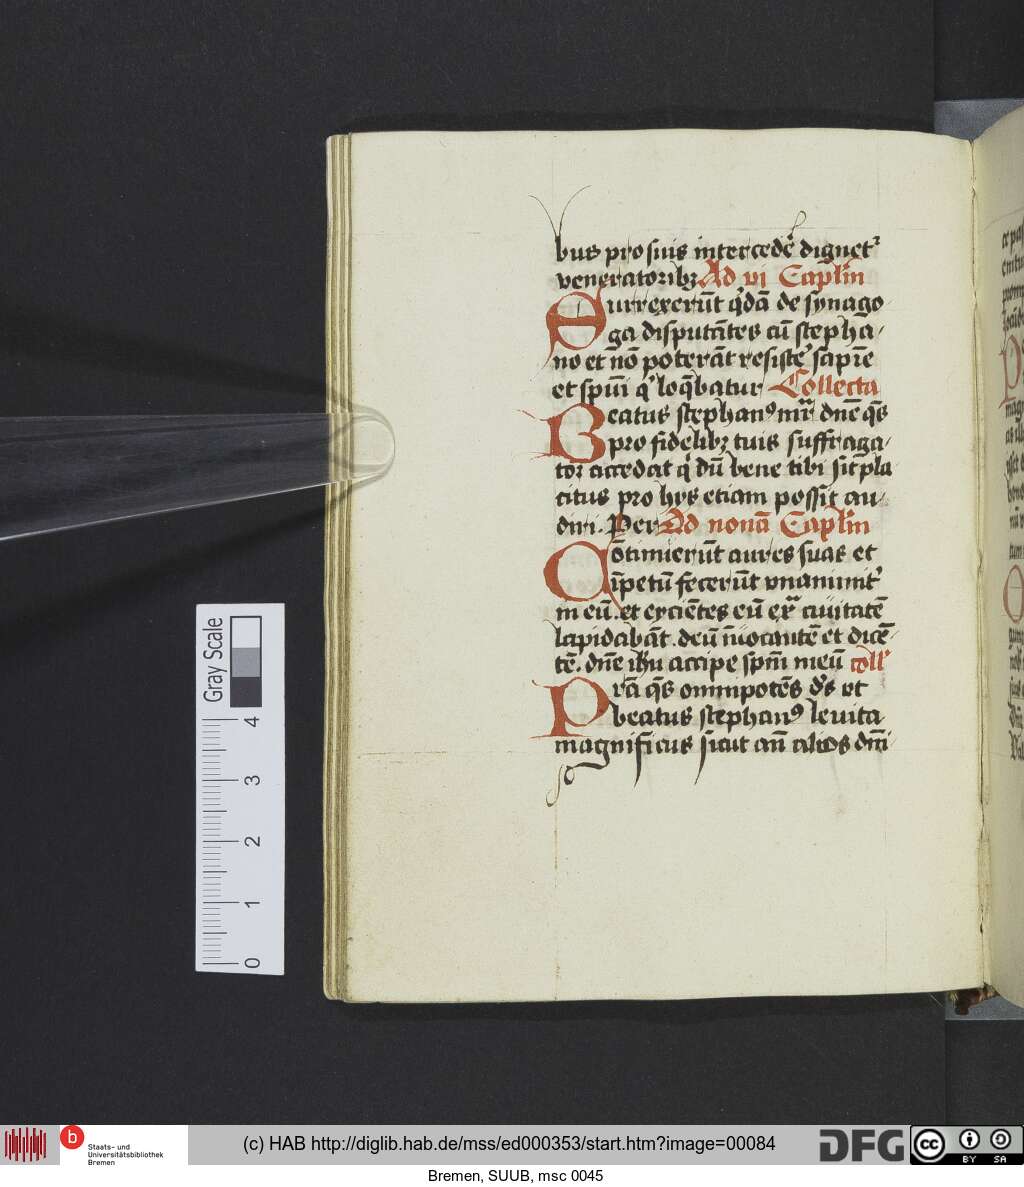 bus pro suis intercede᷑ dignet᷑
veneratoribꝫ Ad vi Cap̄lm̄
Surrexerūt q̓dā de synago
ga disputātes cū stepha/
no et nō poterāt resiste᷑ sapīe
et spūi q̓ loq̄batur Collecta
Beatus stephanꝰ mr̄ dn̄e q̄s
pro fidelibꝫ tuis suffraga/
tor accedat q̓ dū bene tibi sīt pla
citus pro hys etiam possīt au/
diri. Per Ad nonā Cap̄lm̄
Cōtinuerūt aures suas et
īpetū fecerūt vnanimit᷑
in eū. et eycientes eū ext᷑ ciuitatē
lapidabāt. deū īuocantē et dicē/
tē. dn̄e ihū accipe spm̄ meū coll᷑
Pr̄a q̄s omnipotēs ds̄ vt
beatus stephanꝰ leuita
magnificus sicut an̄ alios dn̄i
Gray Scale
0 1 2 3 4
b
Staats- und
Universitätsbibliothek
Bremen
(c) HAB http://diglib.hab.de/mss/ed000353/start.htm?image=00084
DFG
cc BY SA
Bremen, SUUB, msc 0045